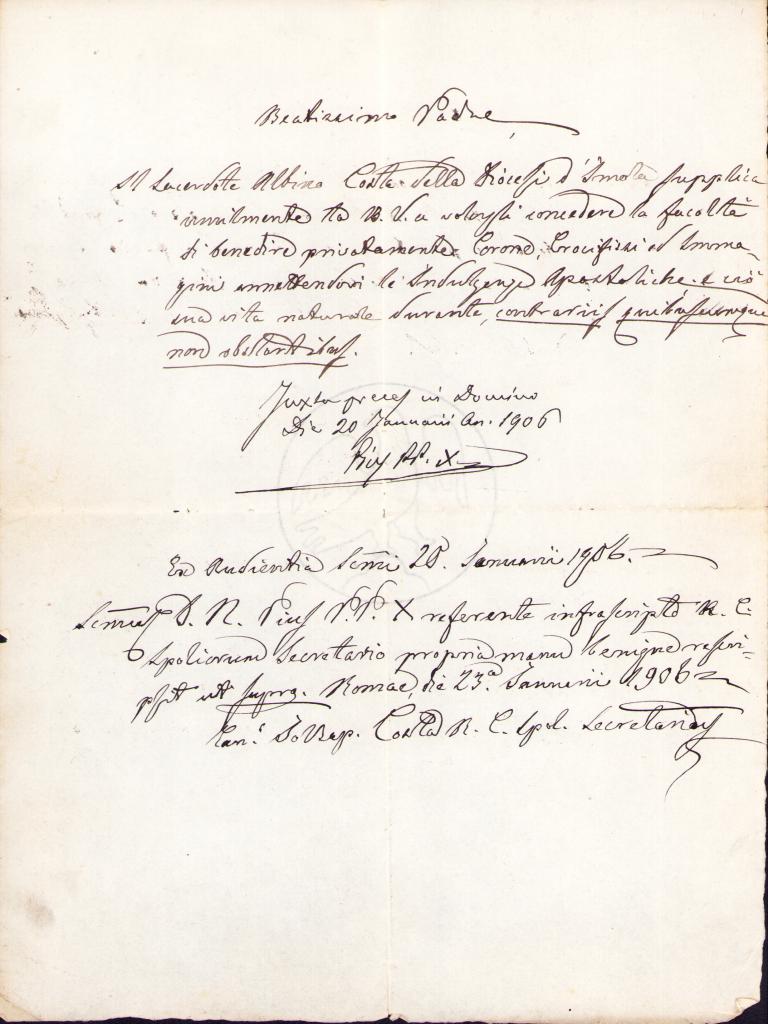 Beatissimo Padre
Il Sacerdote Albino Costa della Diocesi d'Imola supplica
umilmente la B. V. a volergli concedere la facoltà
di benedire privatamente Corone, Crocifissi ed Imma-
gini annettendovi le Indulgenze Apostoliche e ciò
sua vita naturale durante, contrariis quibuscumque
non obstantibus.
Juxta preces in Domino
Die 20 Januarii An. 1906
Pius PP. X
Ex Audientia Ssmi 20. Januarii 1906.
Ssmus D. N. Pius P.P. X referente infrascripto R. C.
Spoliorum Secretario propria manu benigne rescri-
psit ut supra. Romae, die 23a. Januarii 1906
Can. Jo Bap. Costa R. C. Spol. Secretarius